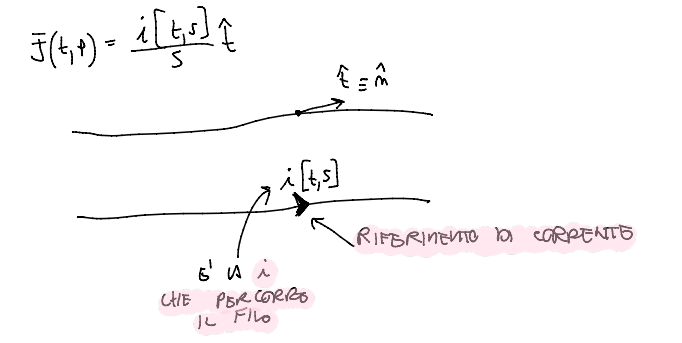 J̄(t,p) = i[t,s]/S t̂
t̂ ≡ n̂
i[t,s]
RIFERIMENTO DI CORRENTE
E' LA i
CHE PERCORRE
IL FILO